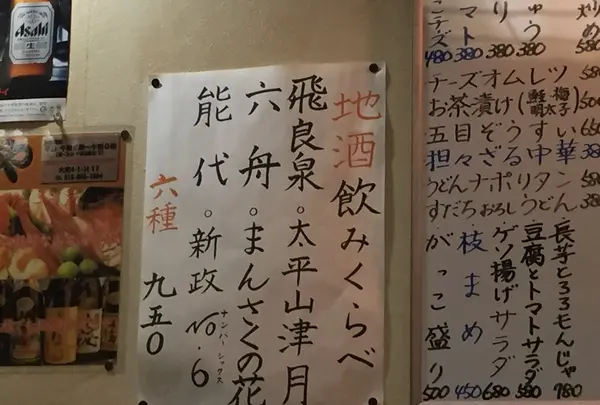 Asahi
生
地酒飲みくらべ
飛良泉。太平山津月
六舟。まんさくの花
能代。新政No.6
ナンバーシックス
六種
九五〇
480 380 380 380
チーズオムレツ 580
お茶漬け(鮭 梅 明太子) 500
五目そうすい 650
担々ざる中華 380
うどんナポリタン 580
すだちおろしうどん 380
がっこ盛り 500
枝まめ 450
ゲソ揚げサラダ 680
豆腐とトマトサラダ 580
長芋とろろもんじゃ 780